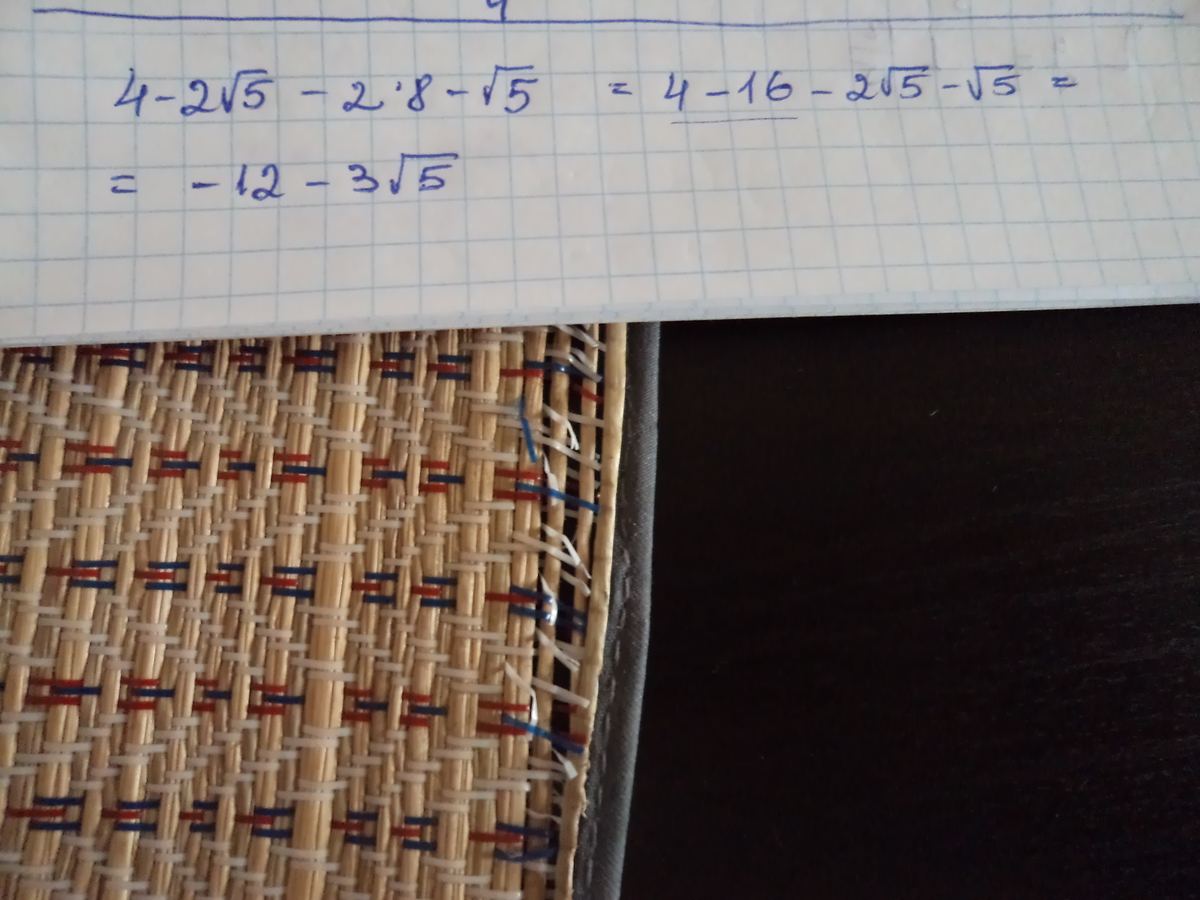 4-2√5 - 2·8-√5 = 4-16-2√5-√5 =
= -12-3√5